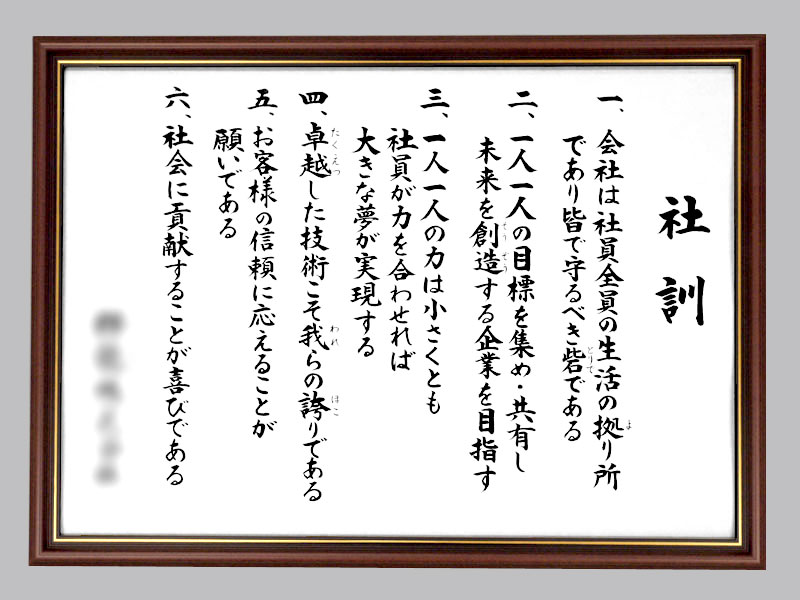 社訓
一、会社は社員全員の生活の拠り所
であり皆で守るべき砦である
二、一人一人の目標を集め・共有し
未来を創造する企業を目指す
三、一人一人の力は小さくとも
社員が力を合わせれば
大きな夢が実現する
四、卓越した技術こそ我らの誇りである
五、お客様の信頼に応えることが
願いである
六、社会に貢献することが喜びである